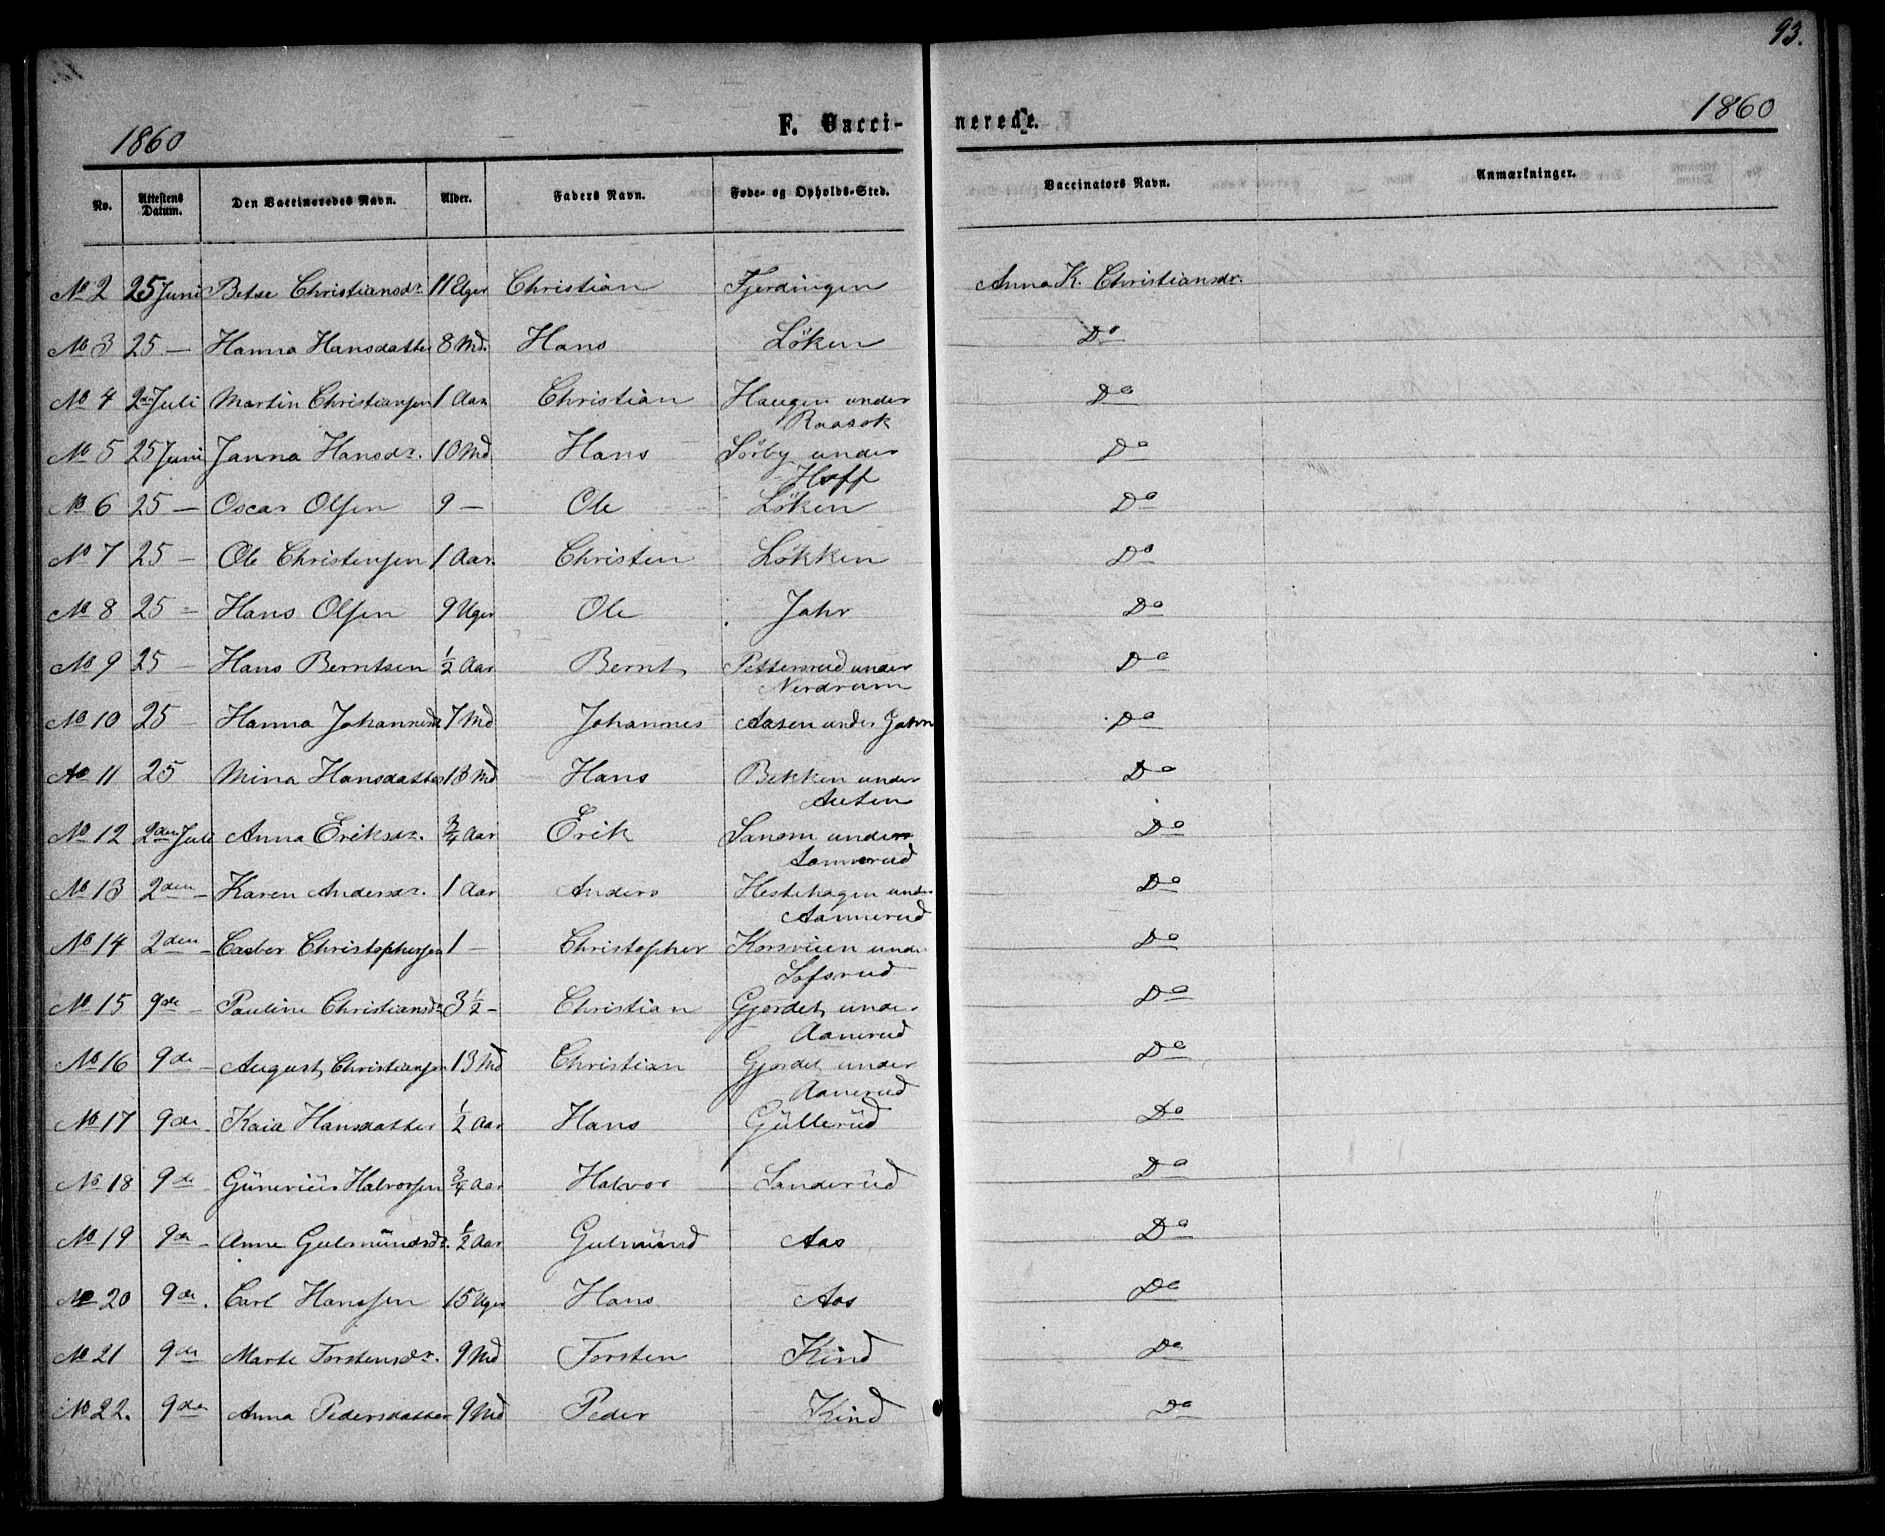 93.
1860 F. Vacci- nerede. 1860
No. Attestens Datum. Den Vaccineredes Navn. Alder. Faders Navn. Føde- og Opholds-Sted. Vaccinators Navn. Anmærkninger.
No 2 25 Juni Betse Christiansdr. 11 Uger Christian Fjerdingen Anna K. Christiansdr.
No 3 25 — Hanna Hansdatter 8 Md. Hans Löken Do
No 4 2den Juli Martin Christiansen 1 Aar Christian Haugen under
Raasok Do
No 5 25 Juni Janna Hansdr. 10 Md Hans Sörby under
Hoff Do
No 6 25 — Oscar Olsen 9 — Ole Löken Do
No 7 25 — Ole Christensen 1 Aar. Christen Løkken Do
No 8 25 — Hans Olsen 9 Uger Ole Jahr Do
No 9 25 — Hans Berntsen ½ Aar Bernt Pettersrud under
Nerdrum Do
No 10 25 — Hanna Johannesdr 7 Md Johannes Aasen under Jahr Do
No 11 25 Mina Hansdatter 13 Md Hans Bekken under
Austen Do
No 12 2den Juli Anna Eriksdr. ¾ Aar Erik under
Do
No 13 2den — Karen Andersdr. 1 Aar Anders Hestehagen under
Aannerud Do
No 14 2den — Casber Christophersen 1 — Christopher Korsveien under
Do
No 15 9de — Pauline Christiansdr 3½ — Christian Gjordet under
Aanerud Do
No 16 9de — August Christiansen 13 Md Christian Gjordet under
Aanerud Do
No 17 9de — Kaia Hansdatter ½ Aar Hans Güllerüd Do
No 18 9de — Halvorsen ¾ Aar Halvor Sanderüd Do
No 19 9de — Anne Gulmündsdr. ½ Aar Gulmünd Aas Do
No 20 9de. Carl Hanssen 15 Uger Hans Aas Do
No 21 9de Marte Torstensdr. 9 Md Torsten Kind Do
No 22. 9de Anna Pedersdatter 9 Md Peder Kind Do